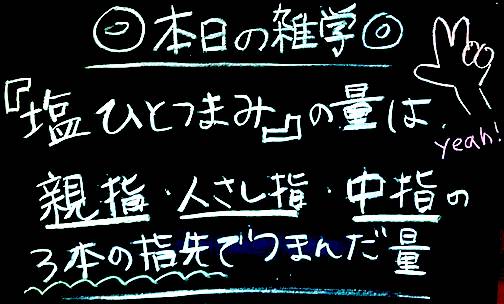 ◎本日の雑学◎
『塩ひとつまみ』の量は
yeah!
親指・人さし指・中指の
3本の指先でつまんだ量